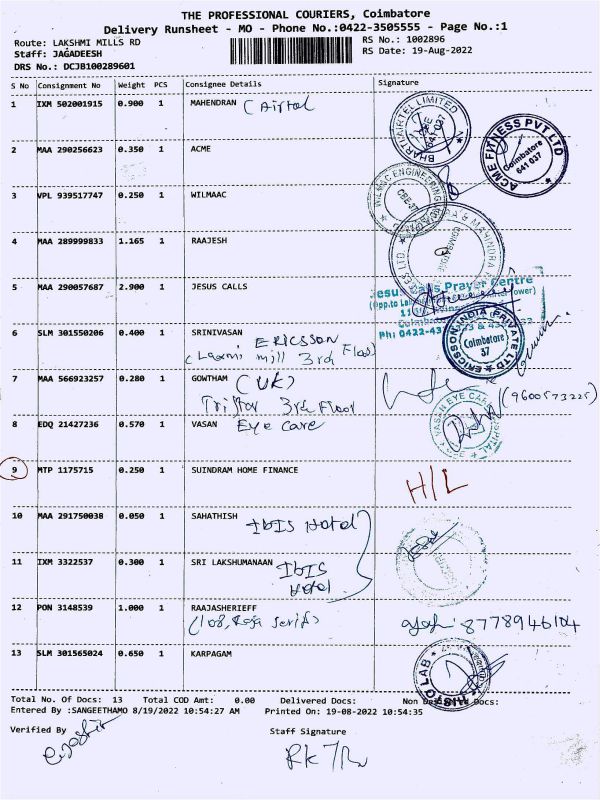 THE PROFESSIONAL COURIERS, Coimbatore
Delivery Runsheet - MO - Phone No.:0422-3505555 - Page No.:1
Route: LAKSHMI MILLS RD
RS No.: 1002896
Staff: JAGADEESH
RS Date: 19-Aug-2022
DRS No.: DCJB100289601
S No Consignment No Weight PCS Consignee Details Signature
1 IXM 502001915 0.900 1 MAHENDRAN (Airtel
BHARTI AIRTEL LIMITED
641 037
ACME FITNESS PVT LTD
Coimbatore
641 037
2 MAA 290256623 0.350 1 ACME
3 VPL 939517747 0.250 1 WILMAAC
ENGINEERING
CBE-37
4 MAA 289999833 1.165 1 RAAJESH
& MAHINDRA
COIMBATORE
5 MAA 290057687 2.900 1 JESUS CALLS
Jesus Calls Prayer Centre
6 SLM 301550206 0.400 1 SRINIVASAN ERICSSON
(Laxmi mill 3rd Floor)
ERICSSON INDIA PRIVATE LTD
Coimbatore
37
7 MAA 566923257 0.280 1 GOWTHAM (UK)
3rd Floor
(9600573225)
8 EDQ 21427236 0.570 1 VASAN Eye care
VASAN EYE CARE HOSPITAL
9 MTP 1175715 0.250 1 SUINDRAM HOME FINANCE
H/L
10 MAA 291750038 0.050 1 SAHATHISH IbIS Hotel
11 IXM 3322537 0.300 1 SRI LAKSHUMANAAN IbIS
Hotel
12 PON 3148539 1.000 1 RAAJASHERIEFF
8778946104
13 SLM 301565024 0.650 1 KARPAGAM
HISTO LAB
Total No. Of Docs: 13 Total COD Amt: 0.00 Delivered Docs: Non Docs:
Entered By :SANGEETHAMO 8/19/2022 10:54:27 AM Printed On: 19-08-2022 10:54:35
Verified By
Staff Signature